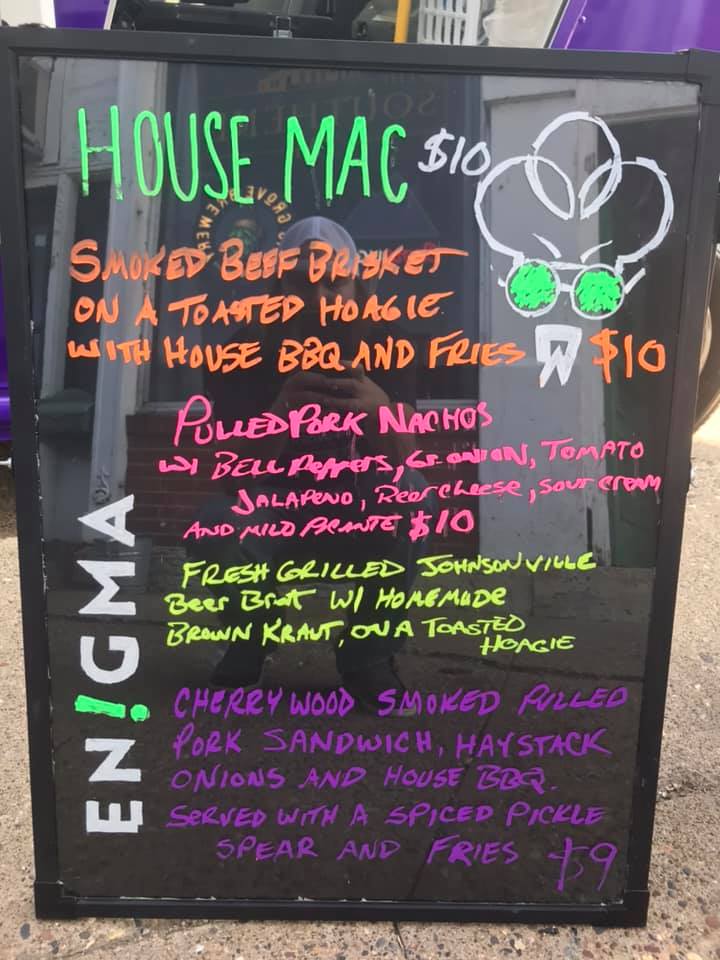 HOUSE MAC $10
SMOKED BEEF BRISKET
ON A TOASTED HOAGIE
WITH HOUSE BBQ AND FRIES $10
PULLED PORK NACHOS
W/ BELL PEPPERS, GR. ONION, TOMATO
JALAPENO, BEER CHEESE, SOUR CREAM
AND MILD PICANTE $10
FRESH GRILLED JOHNSONVILLE
BEER BRAT W/ HOMEMADE
BROWN KRAUT, ON A TOASTED
HOAGIE
CHERRY WOOD SMOKED PULLED
PORK SANDWICH, HAYSTACK
ONIONS AND HOUSE BBQ.
SERVED WITH A SPICED PICKLE
SPEAR AND FRIES $9
EN!GMA